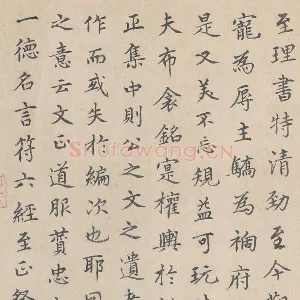 至理書特清勁至今
寵為辱主驕為禍府
是又美不忘規益可玩
夫布衾銘寔權輿於
正集中則公之文之遺
作而或失於編次也耶
之意云文正道服贊忠
一德名言符六經至正
Shufawang.cn